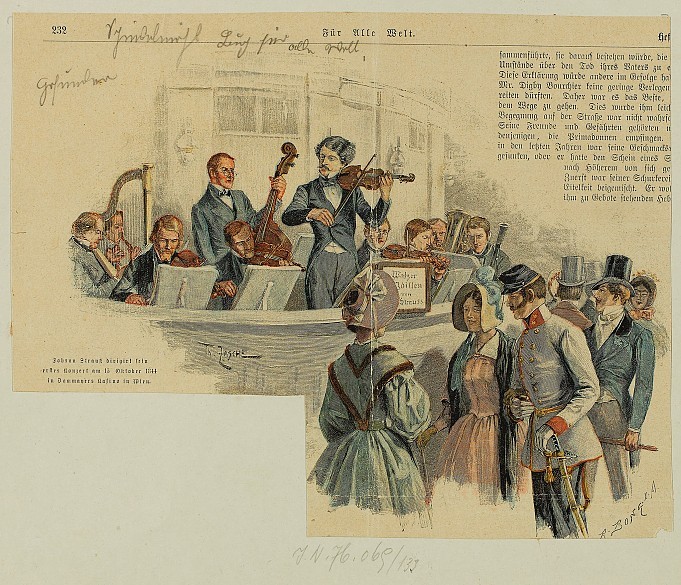 232
Für Alle Welt.
Heft
Buch für alle Welt
ſammenführte, ſie darauf beſtehen würde, die
Umſtände über den Tod ihres Vaters zu e
Dieſe Erklärung würde andere im Gefolge ha
Mr. Digby Bourchier ſeine geringe Verlegen
reiten dürften. Daher war es das Beſte,
dem Wege zu gehen. Dies wurde ihm leich
Begegnung auf der Straße war nicht wahrſch
Seine Freunde und Gefährten gehörten n
denjenigen, die Primadonnen empfingen.
in den letzten Jahren war ſeine Geſchmacks
geſunken, oder er hatte den Schein eines S
nach Höherem von ſich ge
Zuerſt war ſeiner Schurkerei
Eitelkeit beigemiſcht. Er wo
ihm zu Gebote ſtehenden Heb
Walzer
Idyllen
von
Strauß
Johann Strauß dirigirt ſein
erſtes Konzert am 15. Oktober 1844
in Dommayers Kaſino in Wien.
J N. 76.069/133